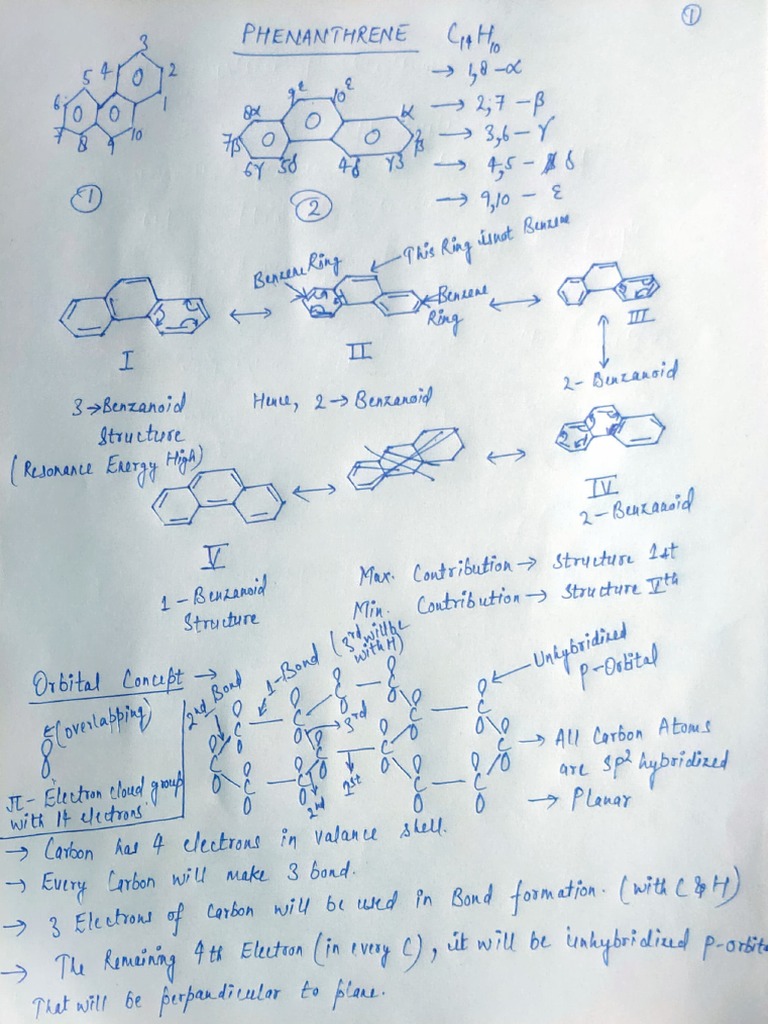 ①
PHENANTHRENE C14H10
→ 1,8 – α
→ 2,7 – β
→ 3,6 – γ
→ 4,5 – δ
→ 9,10 – ε
3
5 4 2
6 1
7 8 9 10
①
9ε 10ε
8α α
7β 2β
6γ 5δ 4δ γ3
②
Benzene Ring This Ring is not Benzene
Benzene
Ring
I II III
3→Benzanoid
Structure
(Resonance Energy High)
Hence, 2 → Benzanoid
2- Benzanoid
IV
2-Benzanoid
V
1-Benzanoid
Structure
Max. Contribution → Structure 1st
Min. Contribution → Structure Vth
Orbital Concept →
(overlapping)
π- Electron cloud group
with 14 electrons.
2nd Bond
1-Bond (3rd will be
with H)
3rd
2nd
1st
C C C C C C C C C C C C C C
Unhybridized
p-Orbital
→ All Carbon Atoms
are sp2 hybridized
→ Planar
→ Carbon has 4 electrons in valance shell.
→ Every Carbon will make 3 bond.
→ 3 Electrons of Carbon will be used in Bond formation. (with C & H)
→ The Remaining 4th Electron (in every C), it will be unhybridized p-orbit
That will be perpandicular to plane.